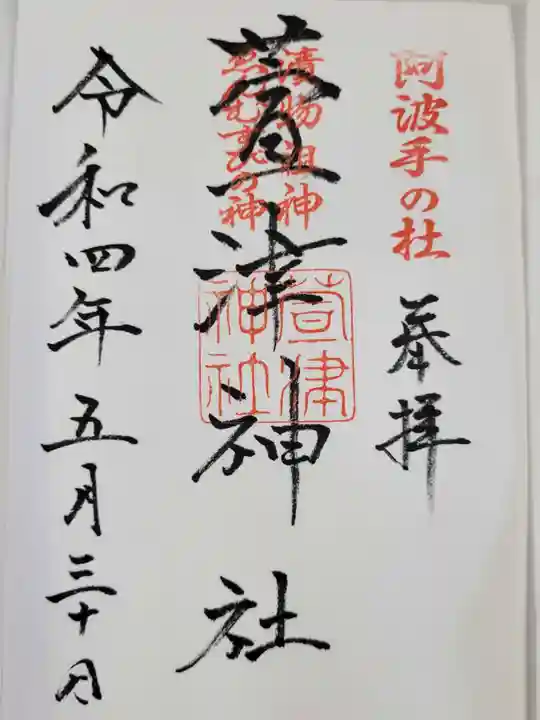 阿波手の杜
奉拝
漬物祖神
えんむすびの神
萱津神社
萱津神社
令和四年五月三十日